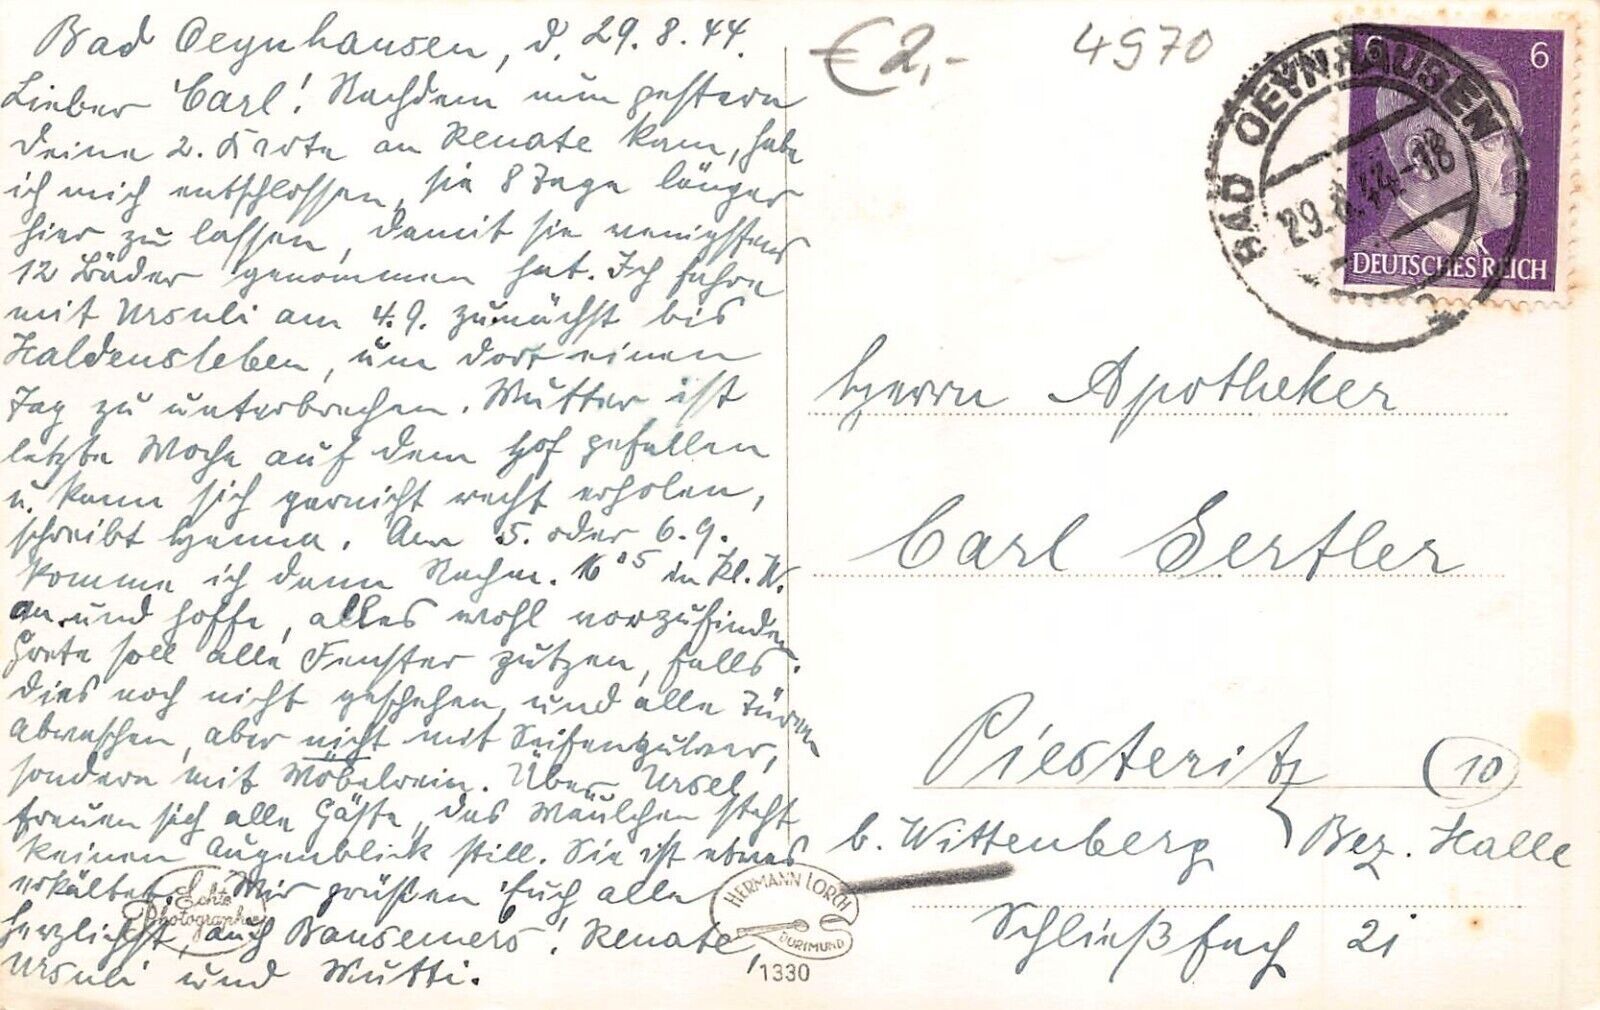 Bad Oeynhausen, d. 29.8.44.
Lieber Carl! Nachdem nun gestern
Deine 2. Karte an Renate kam, habe
ich mich entschlossen, sie 8 Tage länger
hier zu lassen, damit sie wenigstens
12 Bäder genommen hat. Ich fahre
mit Ursuli am 4.9. zunächst bis
Haldensleben, um dort einen
Tag zu unterbrechen. Mutter ist
letzte Woche auf dem Hof gefallen
u. kann sich garnicht recht erholen,
schreibt Hanna. Am 5. oder 6.9.
komme ich dann Nachm. 16⁰⁵ in Kl. W.
an und hoffe, alles wohl vorzufinden.
Grete soll alle Fenster putzen, falls
dies noch nicht geschehen, und alle Türen
abwaschen, aber nicht mit Seifenpulver,
sondern mit Möbelrein. Über Ursel
freuen sich alle Gäste, das Mäulchen steht
keinen Augenblick still. Sie ist etwas
erkältet. Wir grüßen Euch alle
herzlichst, auch Bansemers! Renate,
Ursuli und Mutti.
Echte
Photographie
HERMANN LORCH
DORTMUND
1330
€ 2,-
4970
BAD OEYNHAUSEN
29.8.44.-18
6 6
DEUTSCHES REICH
Herrn Apotheker
Carl Sertler
Piesteritz (10)
b. Wittenberg Bez. Halle
Schließfach 21